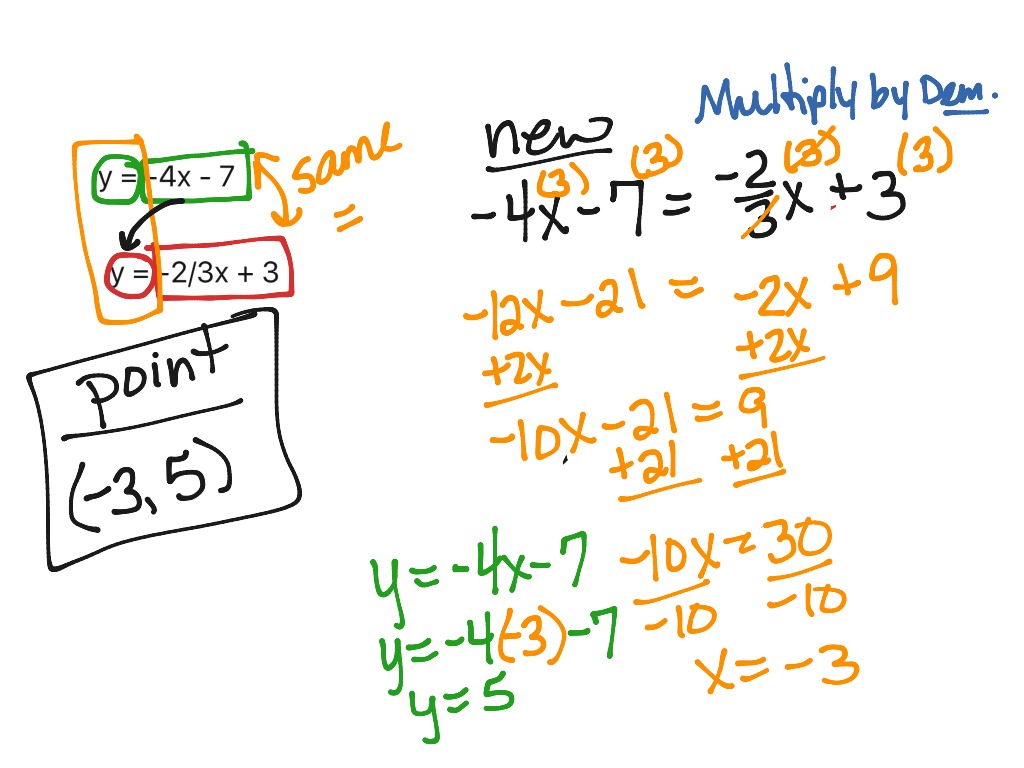 y = -4x - 7
y = -2/3x + 3
same
=
point
(-3, 5)
Multiply by Dem.
new
-4x(3) - 7(3) = -2/3x(3) + 3(3)
-12x - 21 = -2x + 9
+2x +2x
-10x - 21 = 9
+21 +21
-10x = 30
-10 -10
x = -3
y = -4x - 7
y = -4(-3) - 7
y = 5